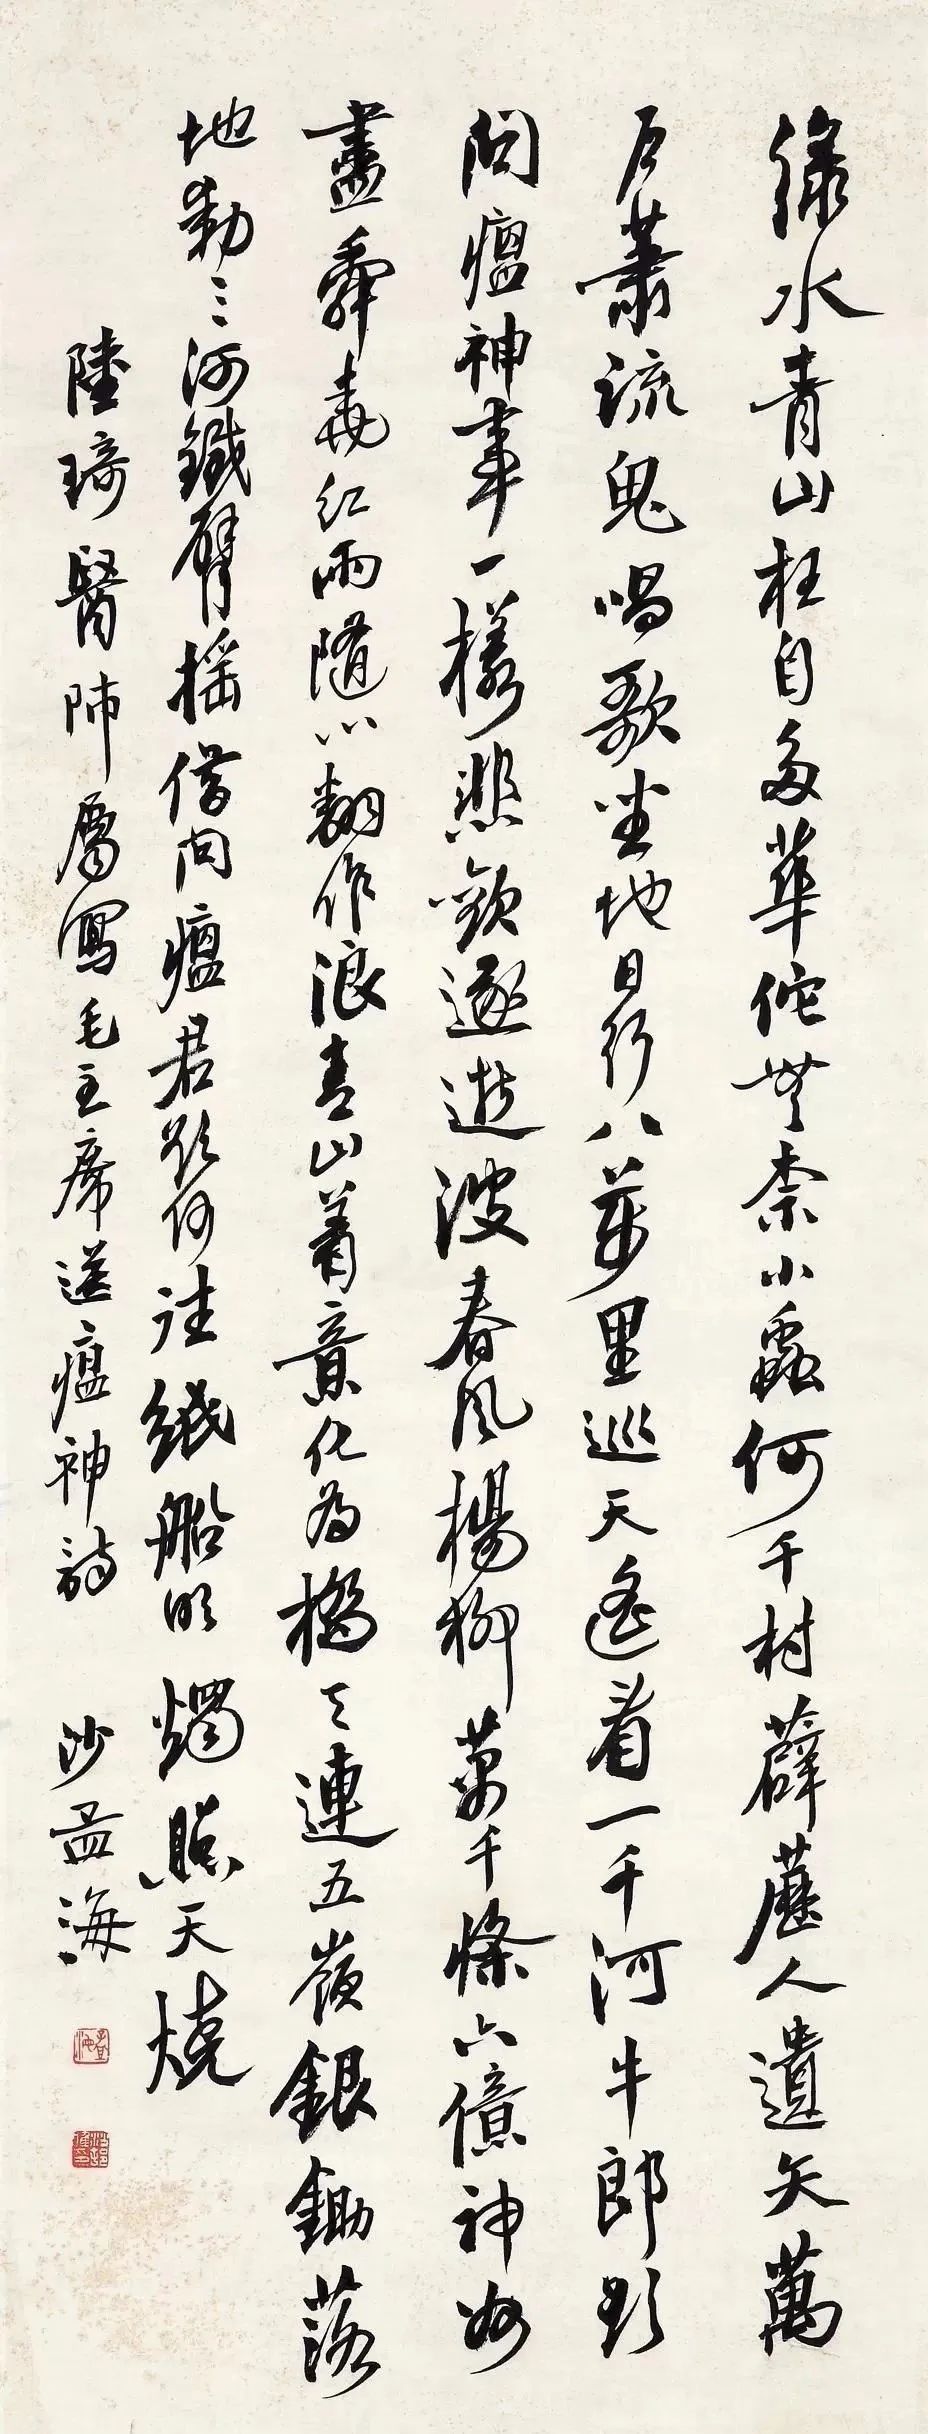 綠水青山枉自多華佗無奈小蟲何千村薜藶人遺矢萬
戶蕭疏鬼唱歌坐地日行八萬里巡天遙看一千河牛郎欲
問瘟神事一樣悲歡逐逝波春風楊柳萬千條六億神州
盡舜堯紅雨隨心翻作浪青山着意化為橋天連五嶺銀鋤落
地動三河鐵臂搖借問瘟君欲何往紙船明燭照天燒
陸琦醫師屬寫毛主席送瘟神詩 沙孟海